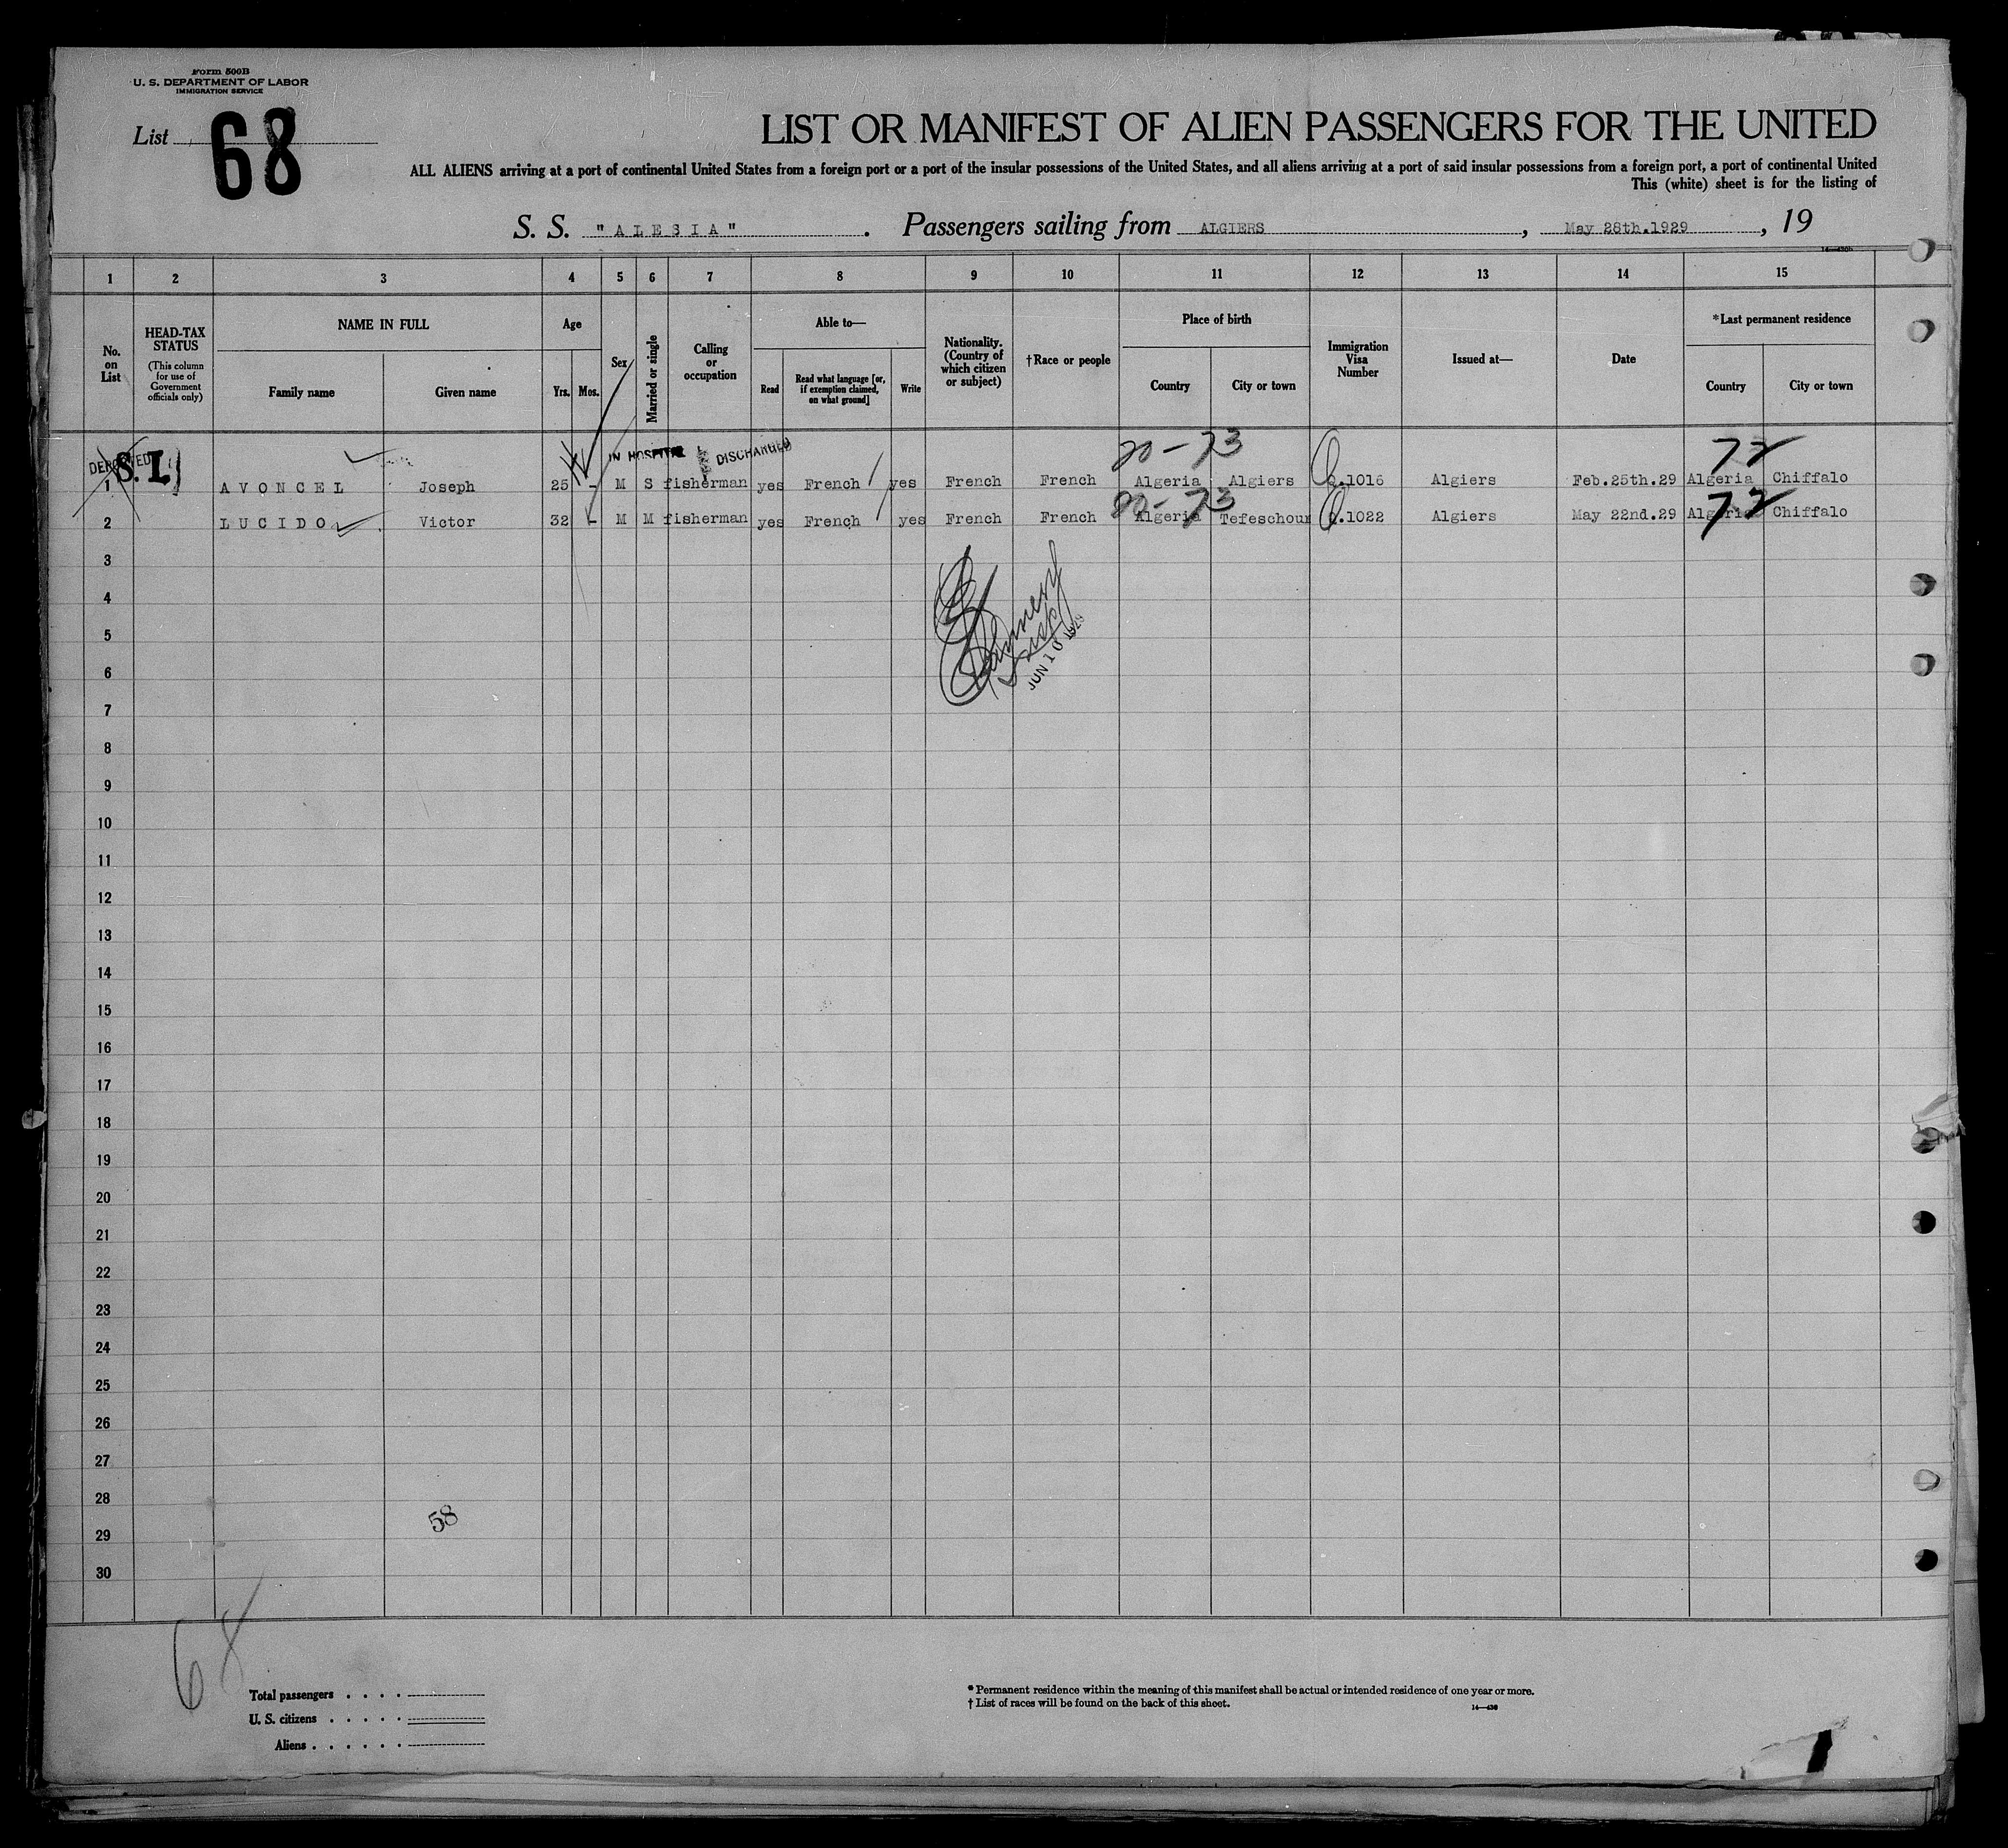 Form 500B
U. S. DEPARTMENT OF LABOR
IMMIGRATION SERVICE
List 68
LIST OR MANIFEST OF ALIEN PASSENGERS FOR THE UNITED
ALL ALIENS arriving at a port of continental United States from a foreign port or a port of the insular possessions of the United States, and all aliens arriving at a port of said insular possessions from a foreign port, a port of continental United
This (white) sheet is for the listing of
S. S. "ALESIA". Passengers sailing from ALGIERS, May 28th.1929, 19
1 2 3 4 5 6 7 8 9 10 11 12 13 14 15
No. on List
HEAD-TAX STATUS
(This column for use of Government officials only)
NAME IN FULL
Family name
Given name
Age
Yrs. Mos.
Sex
Married or single
Calling or occupation
Able to—
Read
Read what language [or, if exemption claimed, on what ground]
Write
Nationality. (Country of which citizen or subject)
†Race or people
Place of birth
Country
City or town
Immigration Visa Number
Issued at—
Date
*Last permanent residence
Country
City or town
DEPORTED S.I. IN HOSPITAL DISCHARGED 73 72
1 AVONCEL Joseph 25 - M S fisherman yes French yes French French Algeria Algiers Q.1016 Algiers Feb.25th.29 Algeria Chiffalo
73 72
2 LUCIDO Victor 32 - M M fisherman yes French yes French French Algeria Tefeschoun Q.1022 Algiers May 22nd.29 Algeria Chiffalo
3
4
5
6
JUN 10 1929
7
8
9
10
11
12
13
14
15
16
17
18
19
20
21
22
23
24
25
26
27
28
58
29
30
68
Total passengers
U. S. citizens
Aliens
* Permanent residence within the meaning of this manifest shall be actual or intended residence of one year or more.
† List of races will be found on the back of this sheet.
14—430